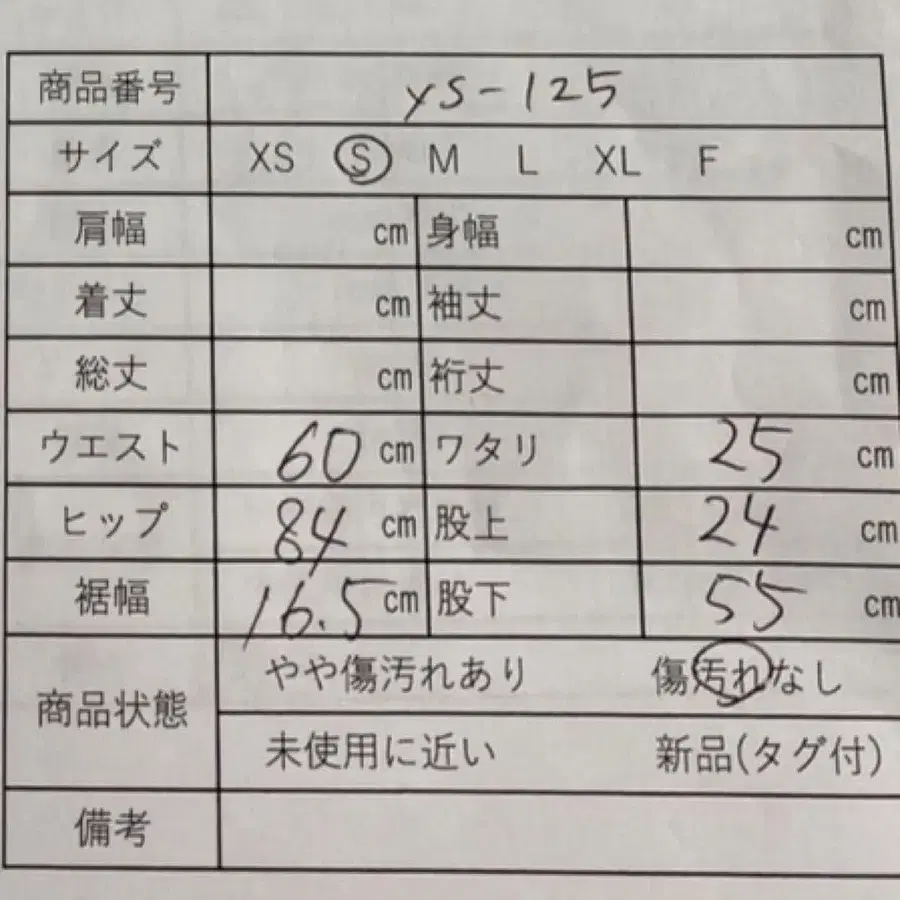 商品番号 ys-125
サイズ XS S M L XL F
肩幅 cm 身幅 cm
着丈 cm 袖丈 cm
総丈 cm 裄丈 cm
ウエスト 60 cm ワタリ 25 cm
ヒップ 84 cm 股上 24 cm
裾幅 16.5 cm 股下 55 cm
商品状態
やや傷汚れあり 傷汚れなし
未使用に近い 新品(タグ付)
備考